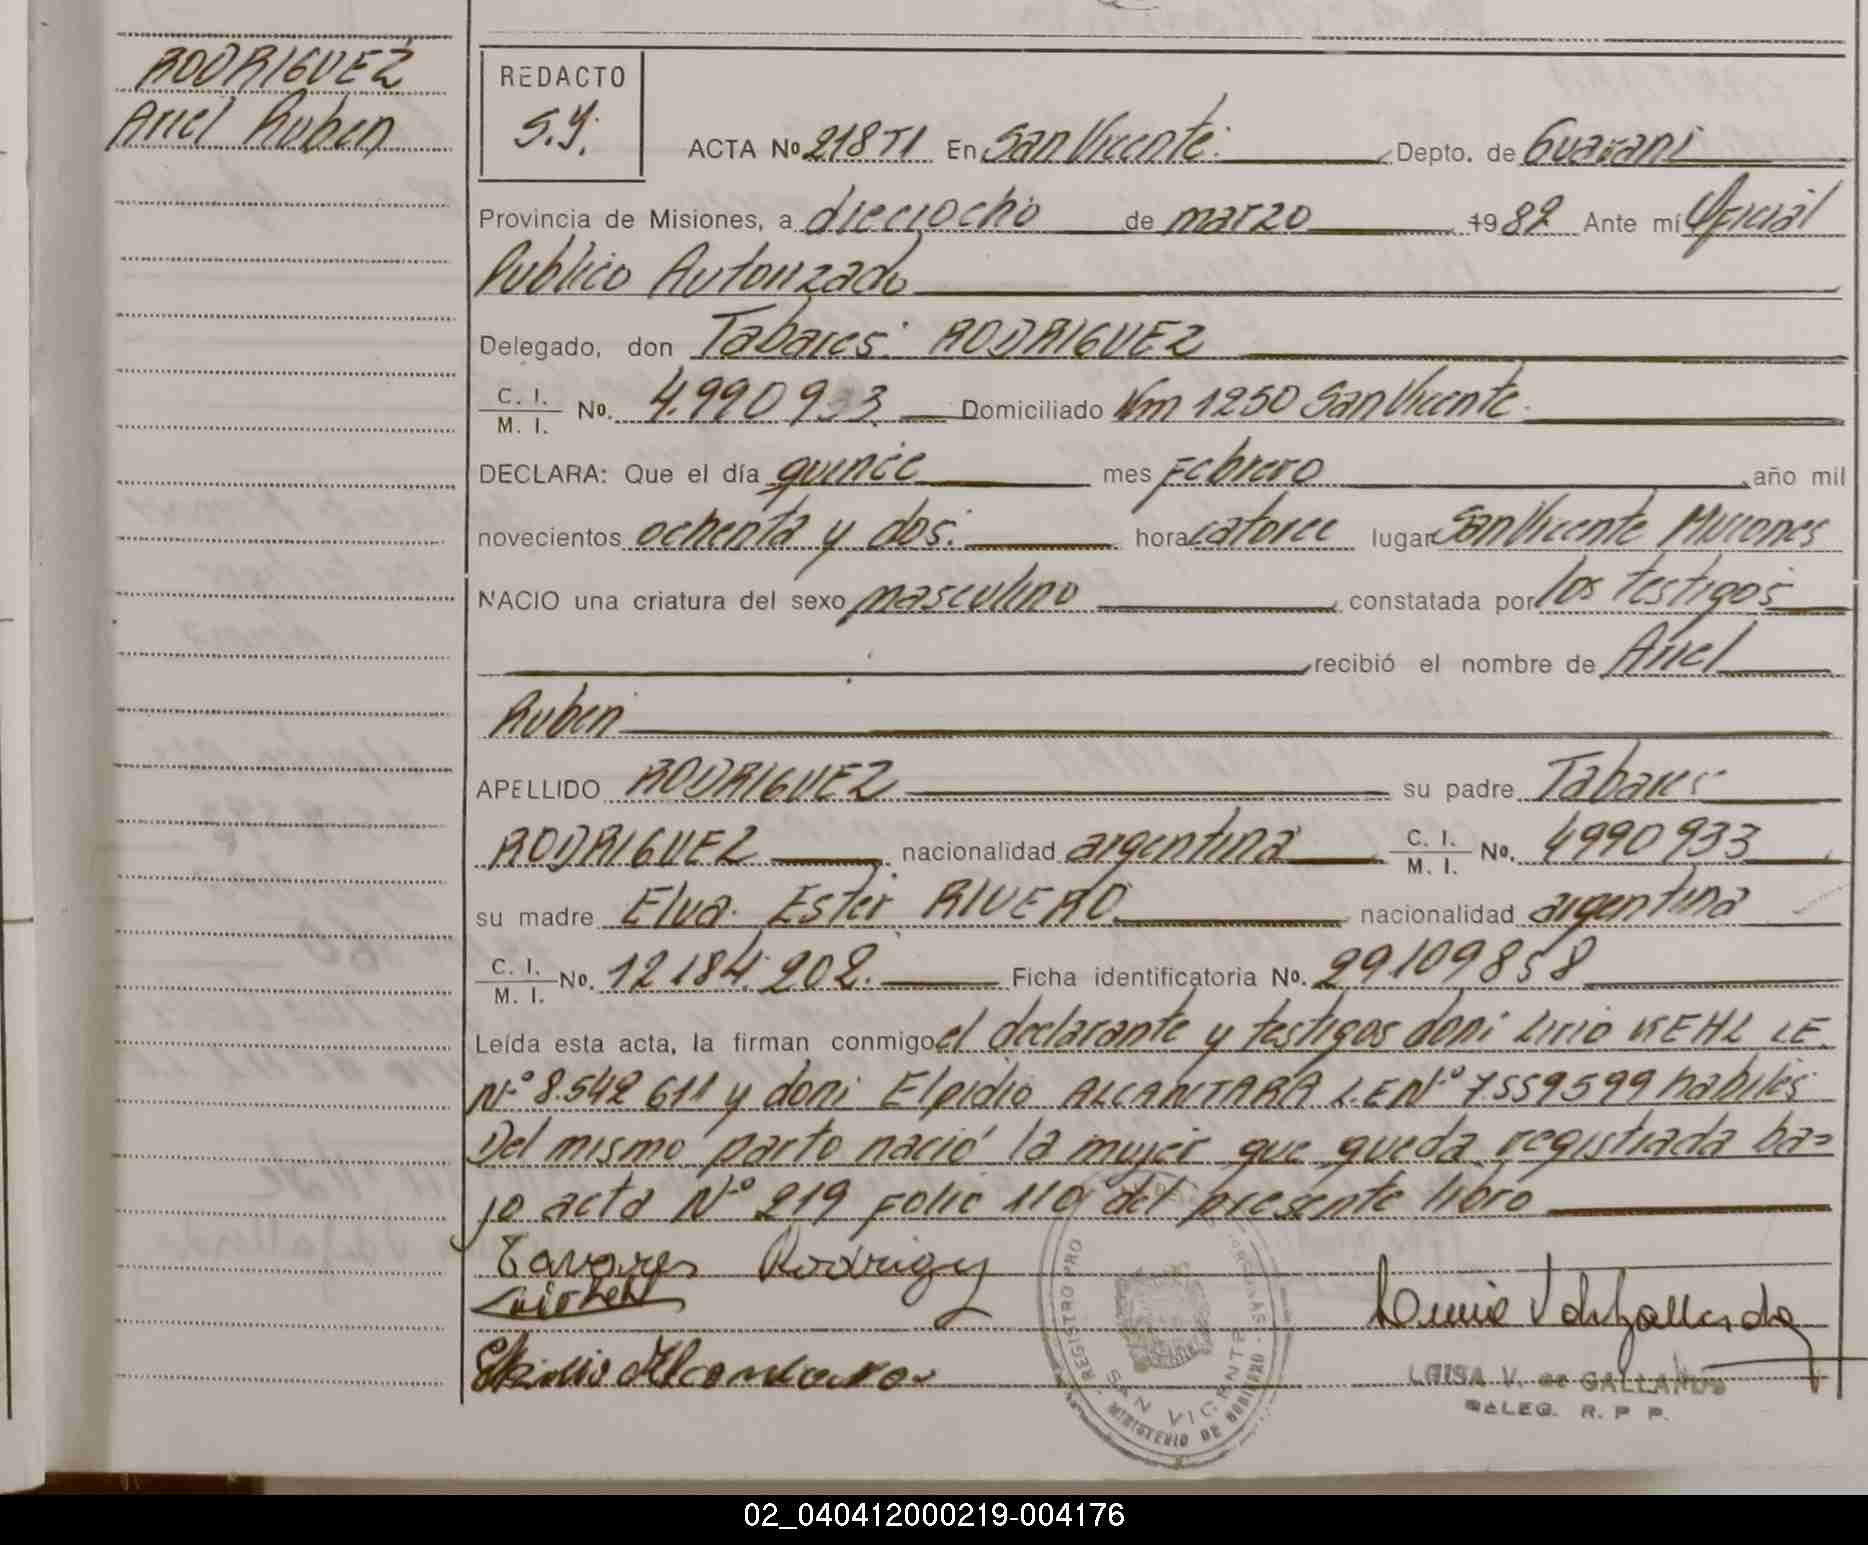 RODRIGUEZ
Ariel Ruben
REDACTO
S.Y.
ACTA Nº 218 T1 En San Vicente. Depto. de Guarani
Provincia de Misiones, a dieciocho de marzo 1982 Ante mí Oficial
Publico Autorizado
Delegado, don Tabares RODRIGUEZ
C. I. / M. I. Nº. 4.990 933 Domiciliado Km 1250 San Vicente.
DECLARA: Que el día quince mes Febrero año mil
novecientos ochenta y dos. hora catorce lugar San Vicente Misiones
NACIO una criatura del sexo masculino constatada por los testigos
recibió el nombre de Ariel
Ruben
APELLIDO RODRIGUEZ su padre Tabares
RODRIGUEZ nacionalidad argentina C. I. / M. I. Nº. 4990933
su madre Elva Ester RIVERO nacionalidad argentina
C. I. / M. I. Nº. 12.184.202. Ficha identificatoria Nº. 29109858
Leída esta acta, la firman conmigo el declarante y testigos don: Lirio KEHL LE.
Nº 8.542 611 y don: Elpidio ALCANTARA L.E Nº 7.559599 habiles
Del mismo parto nació la mujer que queda registrada ba=
jo acta Nº 219 Folio 110 del presente libro
Tavares Rodriguez
Elpidio Alcantara
REGISTRO PRO
SAN VICENTE
MINISTERIO DE GOBIERNO
LUISA V. de GALLARDO
DELEG. R. P P.
02_040412000219-004176